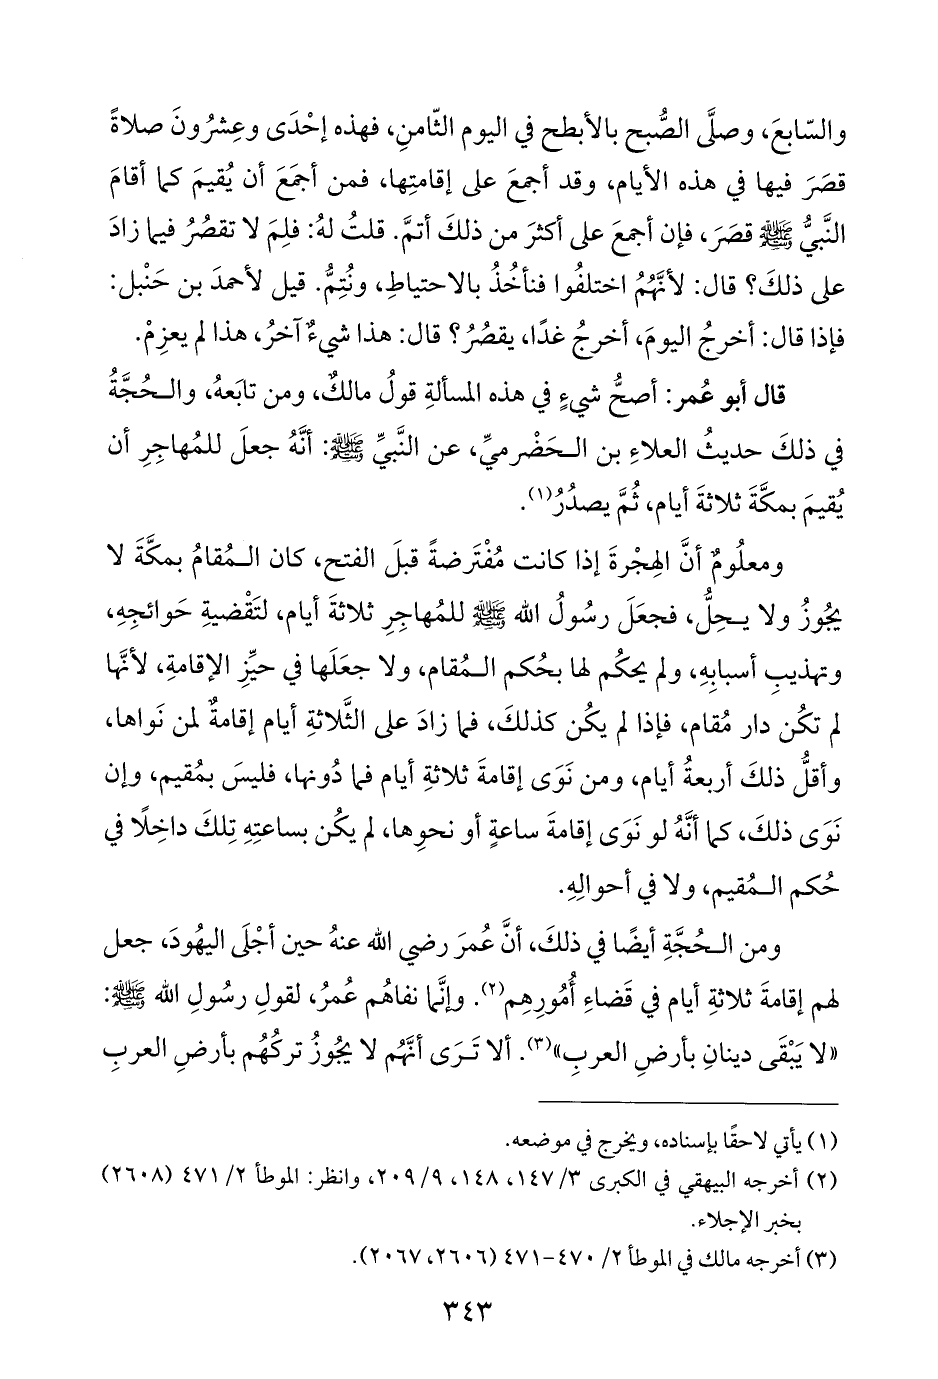 والسّابعَ، وصلَّى الصُّبح بالأبطح في اليوم الثّامنِ، فهذه إحْدَى وعِشرُونَ صلاةً
قصَرَ فيها في هذه الأيام، وقد أجمعَ على إقامتِها، فمن أجمَعَ أن يُقيمَ كما أقامَ
النَّبيُّ ﷺ قصَرَ، فإن أجمعَ على أكثرَ من ذلكَ أتمَّ. قلتُ لهُ: فلِمَ لا تقصُرُ فيما زادَ
على ذلكَ؟ قال: لأنَّهُمُ اختلفُوا فنأخُذُ بالاحتياطِ، ونُتِمُّ. قيل لأحمدَ بن حَنْبل:
فإذا قال: أخرجُ اليومَ، أخرجُ غدًا، يقصُرُ؟ قال: هذا شيءٌ آخرُ، هذا لم يعزِمْ.
قال أبو عُمر: أصحُّ شيءٍ في هذه المسألةِ قولُ مالكٌ، ومن تابَعهُ، والـحُجَّةُ
في ذلكَ حديثُ العلاءِ بن الـحَضْرميِّ، عن النَّبيِّ ﷺ: أنَّهُ جعلَ للمُهاجِرِ أن
يُقيمَ بمكَّةَ ثلاثةَ أيام، ثُمَّ يصدُرُ(١).
ومعلُومٌ أنَّ الهِجْرةَ إذا كانت مُفْترَضةً قبلَ الفتح، كان الـمُقامُ بمكَّةَ لا
يجُوزُ ولا يـحِلُّ، فجعَلَ رسُولُ الله ﷺ للمُهاجِرِ ثلاثةَ أيام، لتَقْضيةِ حَوائجِهِ،
وتهذيبِ أسبابِهِ، ولم يحكُم لها بحُكم الـمُقام، ولا جعَلَها في حيِّزِ الإقامةِ، لأنَّها
لم تكُن دار مُقام، فإذا لم يكُن كذلكَ، فما زادَ على الثَّلاثةِ أيام إقامةٌ لمن نَواها،
وأقلُّ ذلكَ أربعةُ أيام، ومن نَوَى إقامةَ ثلاثةِ أيام فما دُونها، فليسَ بمُقيم، وإن
نَوَى ذلكَ، كما أنَّهُ لو نَوَى إقامةَ ساعةٍ أو نحوِها، لم يكُن بساعتِهِ تِلكَ داخِلًا في
حُكم الـمُقيم، ولا في أحوالِهِ.
ومن الـحُجَّةِ أيضًا في ذلكَ، أنَّ عُمرَ رضي الله عنهُ حين أجْلَى اليهُودَ، جعل
لهم إقامةَ ثلاثةِ أيام في قَضاءِ أُمُورِهِم(٢). وإنَّما نفاهُم عُمرُ، لقولِ رسُولِ الله ﷺ:
«لا يَبْقَى دينانِ بأرضِ العربِ»(٣). ألا تَـرَى أنَّهُم لا يجُوزُ تركُهُم بأرضِ العربِ
(١) يأتي لاحقًا بإسناده، ويخرج في موضعه.
(٢) أخرجه البيهقي في الكبرى ٣/ ١٤٧، ١٤٨، ٩/ ٢٠٩، وانظر: الموطأ ٢/ ٤٧١ (٢٦٠٨)
بخبر الإجلاء.
(٣) أخرجه مالك في الموطأ ٢/ ٤٧٠-٤٧١ (٢٦٠٦، ٢٠٦٧).
٣٤٣